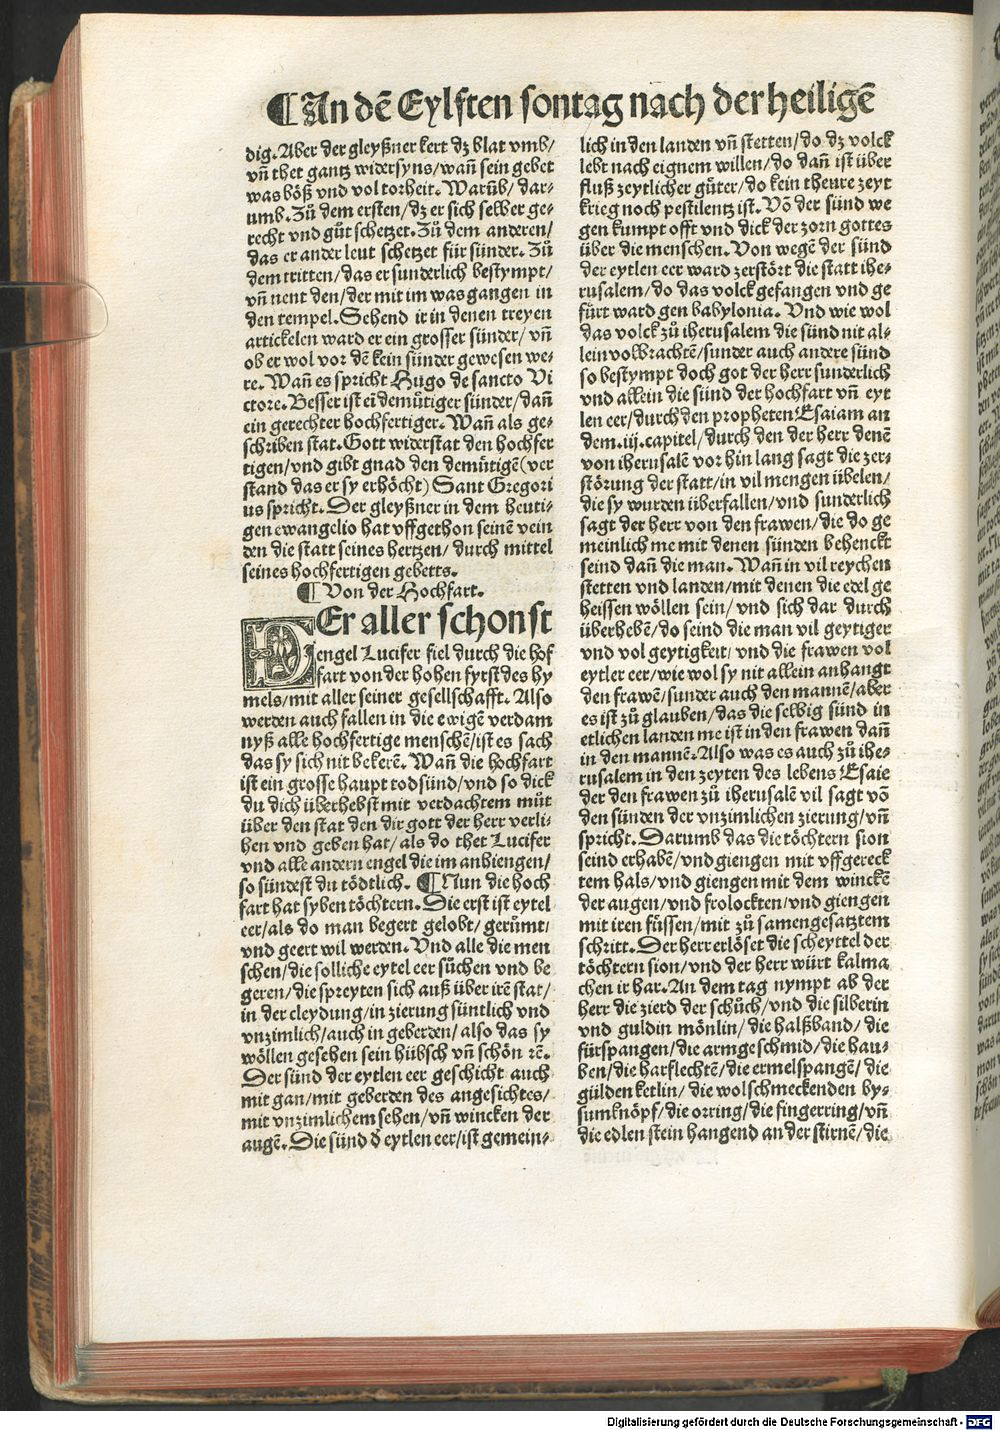 ¶ An dē Eylften sontag nach der heiligē
dig. Aber der gleyßner kert dz blat vmb/
vñ thet gantz widersyns/wañ sein gebet
was böß vnd vol torheit. Warūb/ dar-
umb. Zů dem ersten/dz er sich selber ge-
recht vnd gůt schetzet. Zů dem anderen/
das er ander leut schetzet für sünder. Zů
dem tritten/das er sunderlich bestympt/
vñ nent den/der mit im was gangen in
den tempel. Sehend ir in denen treyen
artickelen ward er ein grosser sünder/ vñ
ob er wol vor dē kein sünder gewesen we-
re. Wañ es spricht Hugo de sancto Vi
ctore. Besser ist eī demütiger sünder/dañ
ein gerechter hochfertiger. Wañ als ge-
schriben stat. Gott widerstat den hochfer
tigen/vnd gibt gnad den demütigē(ver
stand das er sy erhöcht) Sant Gregori
us spricht. Der gleyßner in dem heuti-
gen ewangelio hat vffgethon seinē vein
den die statt seines hertzen/ durch mittel
seines hochfertigen gebetts.
¶ Von der Hochfart.
DEr aller schonst
engel Lucifer fiel durch die hof
fart von der hohen fyrst des hy
mels/mit aller seiner gesellschafft. Also
werden auch fallen in die ewigē verdam
nyß alle hochfertige menschē/ist es sach
das sy sich nit bekerē. Wañ die hochfart
ist ein grosse haupt todsünd/vnd so dick
du dich überhebst mit verdachtem můt
über den stat den dir gott der herr verli-
hen vnd geben hat/als do thet Lucifer
vnd alle andern engel die im anhiengen/
so sündest du tödtlich. ¶ Nun die hoch
fart hat syben töchtern. Die erst ist eytel
eer/als do man begert gelobt/ gerümt/
vnd geert wil werden. Vnd alle die men
schen/die solliche eytel eer sůchen vnd be
geren/die spreyten sich auß über irē stat/
in der cleydung/in zierung süntlich vnd
vnzimlich/auch in geberden/also das sy
wöllen gesehen sein hübsch vñ schön rē.
Der sünd der eytlen eer geschicht auch
mit gan/mit geberden des angesichtes/
mit vnzimlichem sehen/vñ wincken der
augē. Die sünd đ eytlen eer/ist gemein-
lich in den landen vñ stetten/do dz volck
lebt nach eignem willen/do dañ ist über
fluß zeytlicher güter/do kein theure zeyt
krieg noch pestilentz ist. Vō der sünd we
gen kumpt offt vnd dick der zorn gottes
über die menschen. Von wegē der sünd
der eytlen eer ward zerstört die statt ihe-
rusalem/do das volck gefangen vnd ge
fürt ward gen babylonia. Vnd wie wol
das volck zů iherusalem die sünd nit al-
lein volbrachtē/sunder auch andere sünd
so bestympt doch got der herr sunderlich
vnd allein die sünd der hochfart vñ eyt
len eer/durch den propheten Esaiam an
dem.iij.capitel/durch den der herr denē
von iherusalē vor hin lang sagt die zer-
störung der statt/in vil mengen übelen/
die sy wurden überfallen/vnd sunderlich
sagt der herr von den frawen/die do ge
meinlich me mit denen sünden behenckt
seind dañ die man. Wañ in vil reychen
stetten vnd landen/mit denen die edel ge
heissen wöllen sein/vnd sich dar durch
überhebē/do seind die man vil geytiger
vnd vol geytigkeit/vnd die frawen vol
eytler eer/wie wol sy nit allein anhangt
den frawē/sunder auch den mannē/aber
es ist zů glauben/das die selbig sünd in
etlichen landen me ist in den frawen dañ
in den mannē. Also was es auch zů ihe-
rusalem in den zeyten des lebens Esaie
der den frawen zů iherusalē vil sagt vō
den sünden der vnzimlichen zierung/vñ
spricht. Darumb das die töchtern sion
seind erhabē/vnd giengen mit vffgereck
tem hals/vnd giengen mit dem winckē
der augen/vnd frolockten/vnd giengen
mit iren füssen/mit zů samengesatztem
schritt. Der herr erlöset die scheyttel der
töchtern sion/vnd der herr würt kal ma
chen ir har. An dem tag nympt ab der
herr die zierd der schůch/vnd die silberin
vnd guldin mönlin/die halßband/die
fürspangen/die armgeschmid/die hau-
ben/die harflechtē/die ermelspangē/die
gülden ketlin/die wolschmeckenden by-
sumknöpf/die orring/die fingerring/vñ
die edlen stein hangend an der stirnē/die
Digitalisierung gefördert durch die Deutsche Forschungsgemeinschaft -
DFG